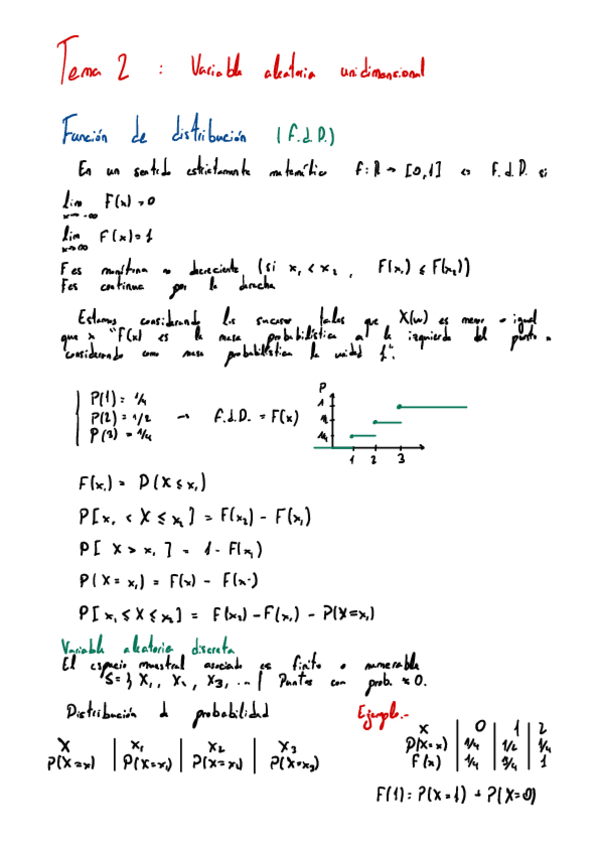 Tema 2 : Variable aleatoria unidimensional
Función de distribución (F.d.D.)
En un sentido estrictamente matemático F: R → [0,1] es F.d.D. si
lim F(x) = 0
x→-∞
lim F(x) = 1
x→∞
F es monótona no decreciente (si x₁ < x₂ , F(x₁) ≤ F(x₂))
F es continua por la derecha
Estamos considerando los sucesos tales que X(w) es menor o igual
que x "F(x) es la masa probabilística a la izquierda del punto x
considerando como masa probabilística la unidad 1".
P(1) = 1/4
P(2) = 1/2 → F.d.D. = F(x)
P(3) = 1/4
P
1
1/4
1 2 3
F(x₁) = P(X ≤ x₁)
P[x₁ < X ≤ x₂] = F(x₂) - F(x₁)
P[ X > x₁ ] = 1 - F(x₁)
P(X = x₁) = F(x) - F(x⁻)
P[x₁ ≤ X ≤ x₂] = F(x₂) - F(x₁) - P(X=x₁)
Variable aleatoria discreta
El espacio muestral asociado es finito o numerable
S = { X₁, X₂, X₃, ... | Puntos con prob. ≠ 0.
Distribución d probabilidad
X | x₁ | x₂ | x₃
P(X=x) | P(X=x₁) | P(X=x₂) | P(X=x₃)
Ejemplo.-
X | 0 | 1 | 2
P(X=x) | 1/4 | 1/2 | 1/4
F(x) | 1/4 | 3/4 | 1
F(1): P(X=1) + P(X=0)